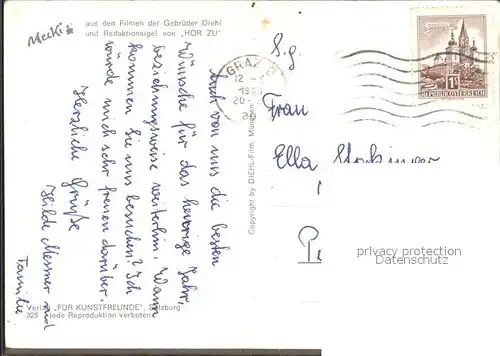 Mecki
aus den Filmen der Gebrüder Diehl
und Redaktionsigel von "HÖR ZU"
Auch von uns die besten
Wünsche für das heurige Jahr,
beziehungsweise weiterhin. Wann
kommen Sie uns besuchen? Ich
würde mich sehr freuen darüber.
Herzliche Grüße
Hilde Messner und
Familie
Verlag "FÜR KUNSTFREUNDE", Salzburg
328 Jede Reproduktion verboten
Copyright by DIEHL-Film, München
GRAZ
12
20
REPUBLIK ÖSTERREICH
1S
S.g.
Frau
Ella
privacy protection
Datenschutz